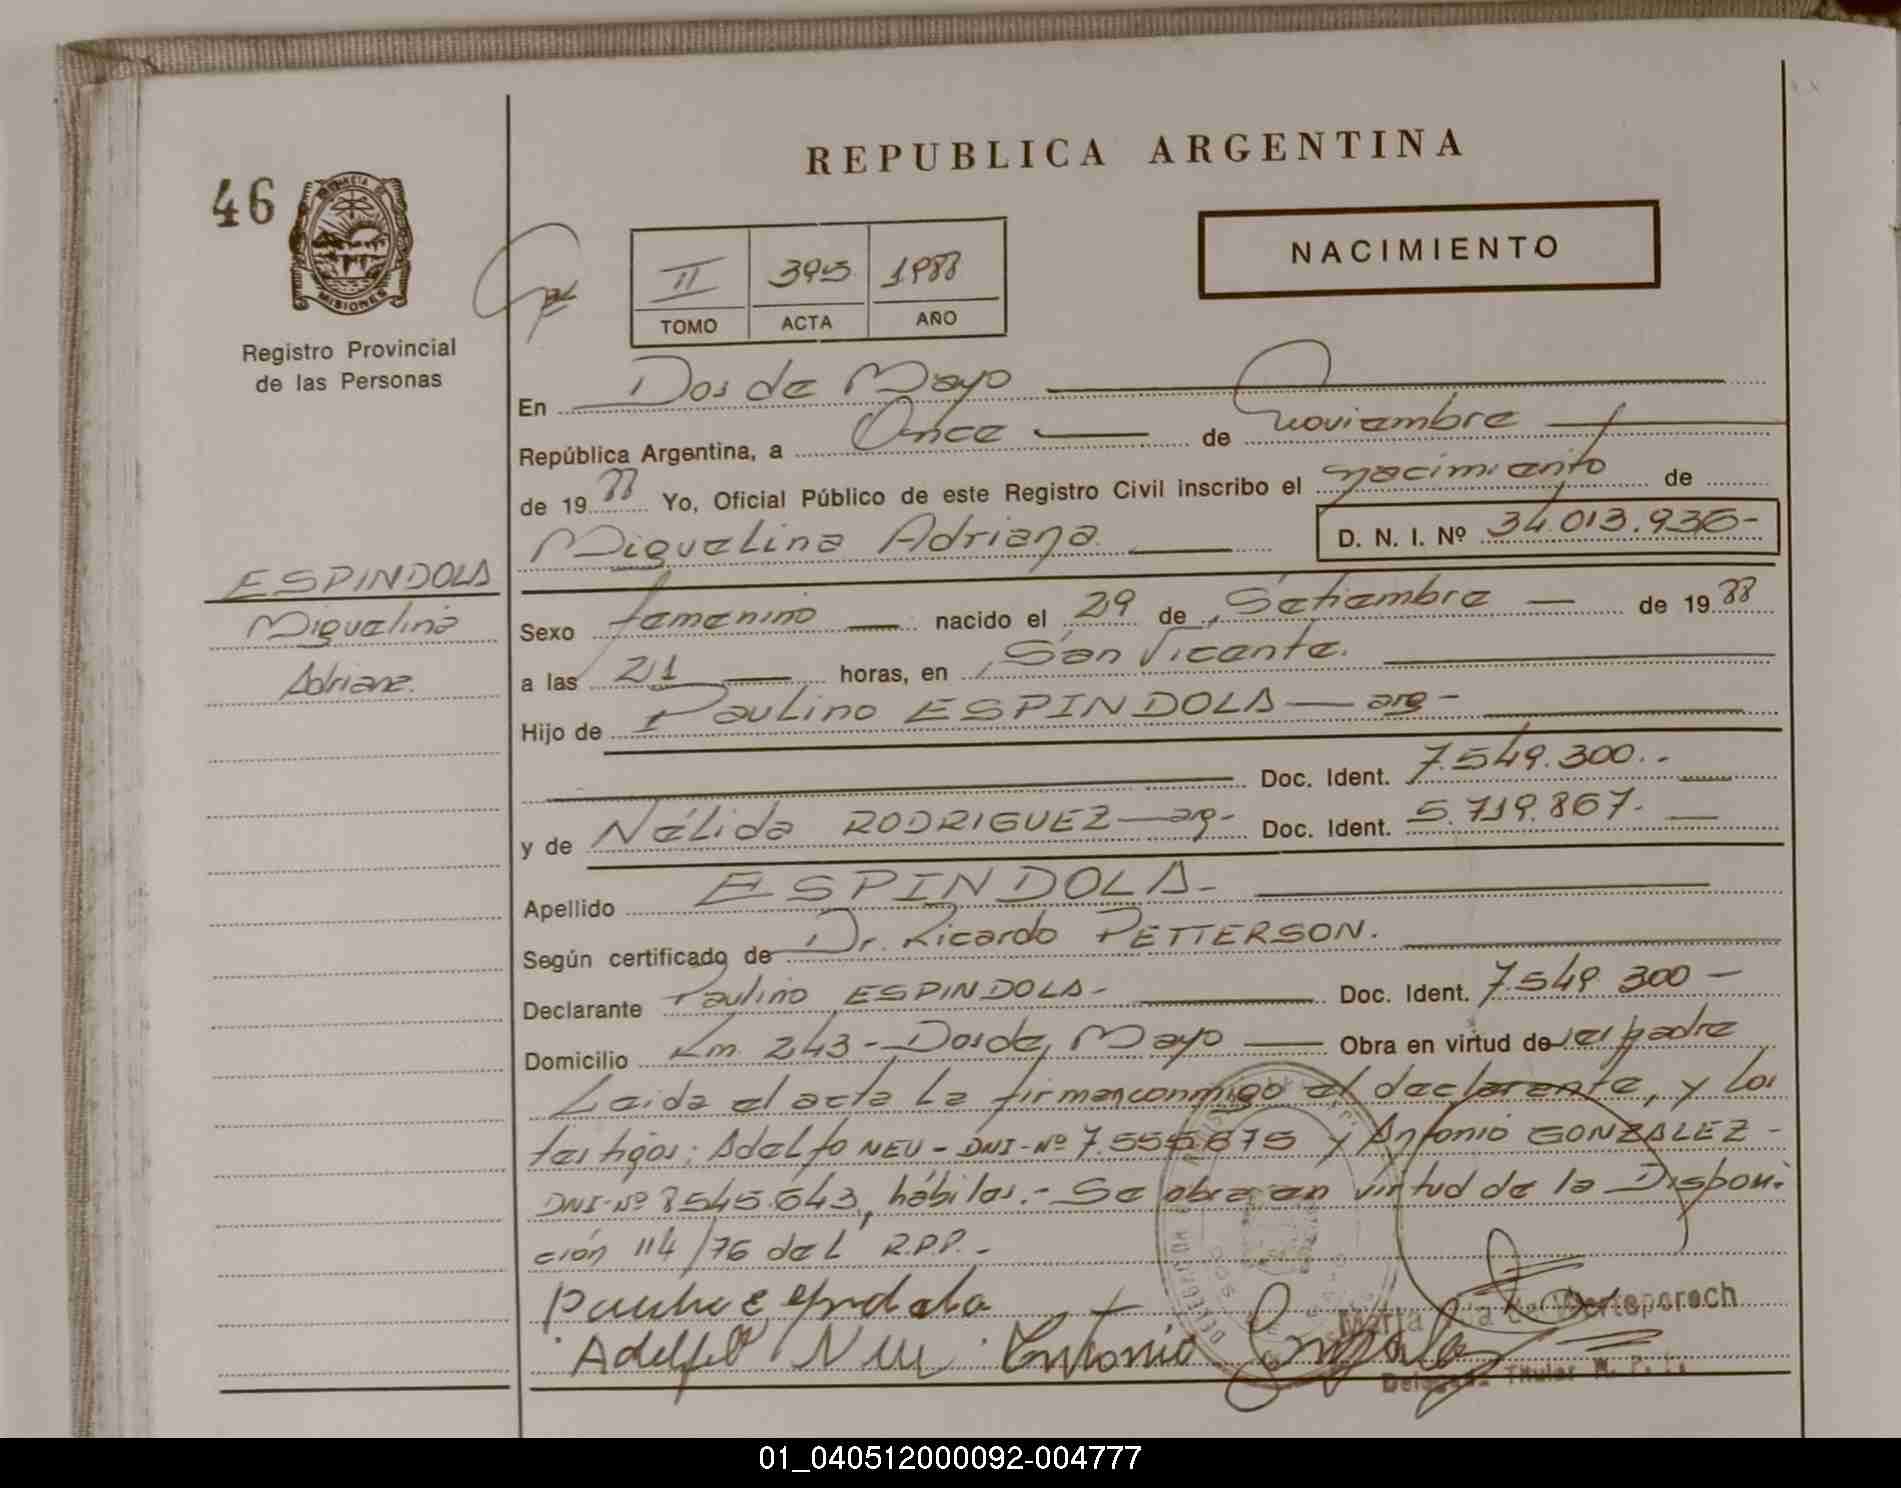 REPUBLICA ARGENTINA
46
PROVINCIA DE
MISIONES
Registro Provincial
de las Personas
II 395 1988
TOMO ACTA AÑO
NACIMIENTO
En Dos de Mayo
República Argentina, a Once de noviembre
de 1988 Yo, Oficial Público de este Registro Civil inscribo el nacimiento de
Miguelina Adriana D. N. I. Nº 34.013.936-
ESPINDOLA
Miguelina
Adriana.
Sexo femenino nacido el 29 de Setiembre de 1988
a las 21 horas, en San Vicente.
Hijo de Paulino ESPINDOLA — arg -
Doc. Ident. 7.549.300.-
y de Nélida RODRIGUEZ — arg- Doc. Ident. 5.719.867.
Apellido ESPINDOLA-
Según certificado de Dr. Ricardo PETTERSON.
Declarante Paulino ESPINDOLA- Doc. Ident. 7.549.300 -
Domicilio Km. 243 - Dos de Mayo Obra en virtud de ser padre
Leida el acta la firman conmigo el declarante, y los
testigos: Adelfo NEU - DNI-Nº 7.555.875 y Antonio GONZALEZ -
DNI-Nº 8545.643, hábiles.- Se obra en virtud de la Disposi-
ción 114/76 del R.P.P.-
Adelfo Neu Antonio Gonzalez
Delegada Titular R. P. P.
01_040512000092-004777